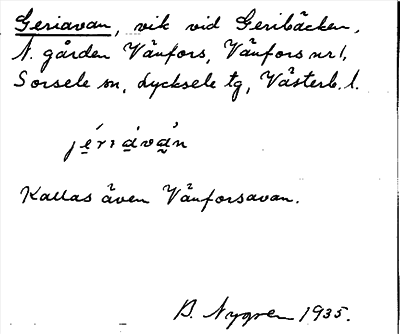 Geriavan, vik vid Geribäcken,
N. gården Vänfors, Vänfors nr 1,
Sorsele sn, Lycksele tg, Västerb. l.
jériávàn
Kallas även Vänforsavan.
B. Nygren 1935.